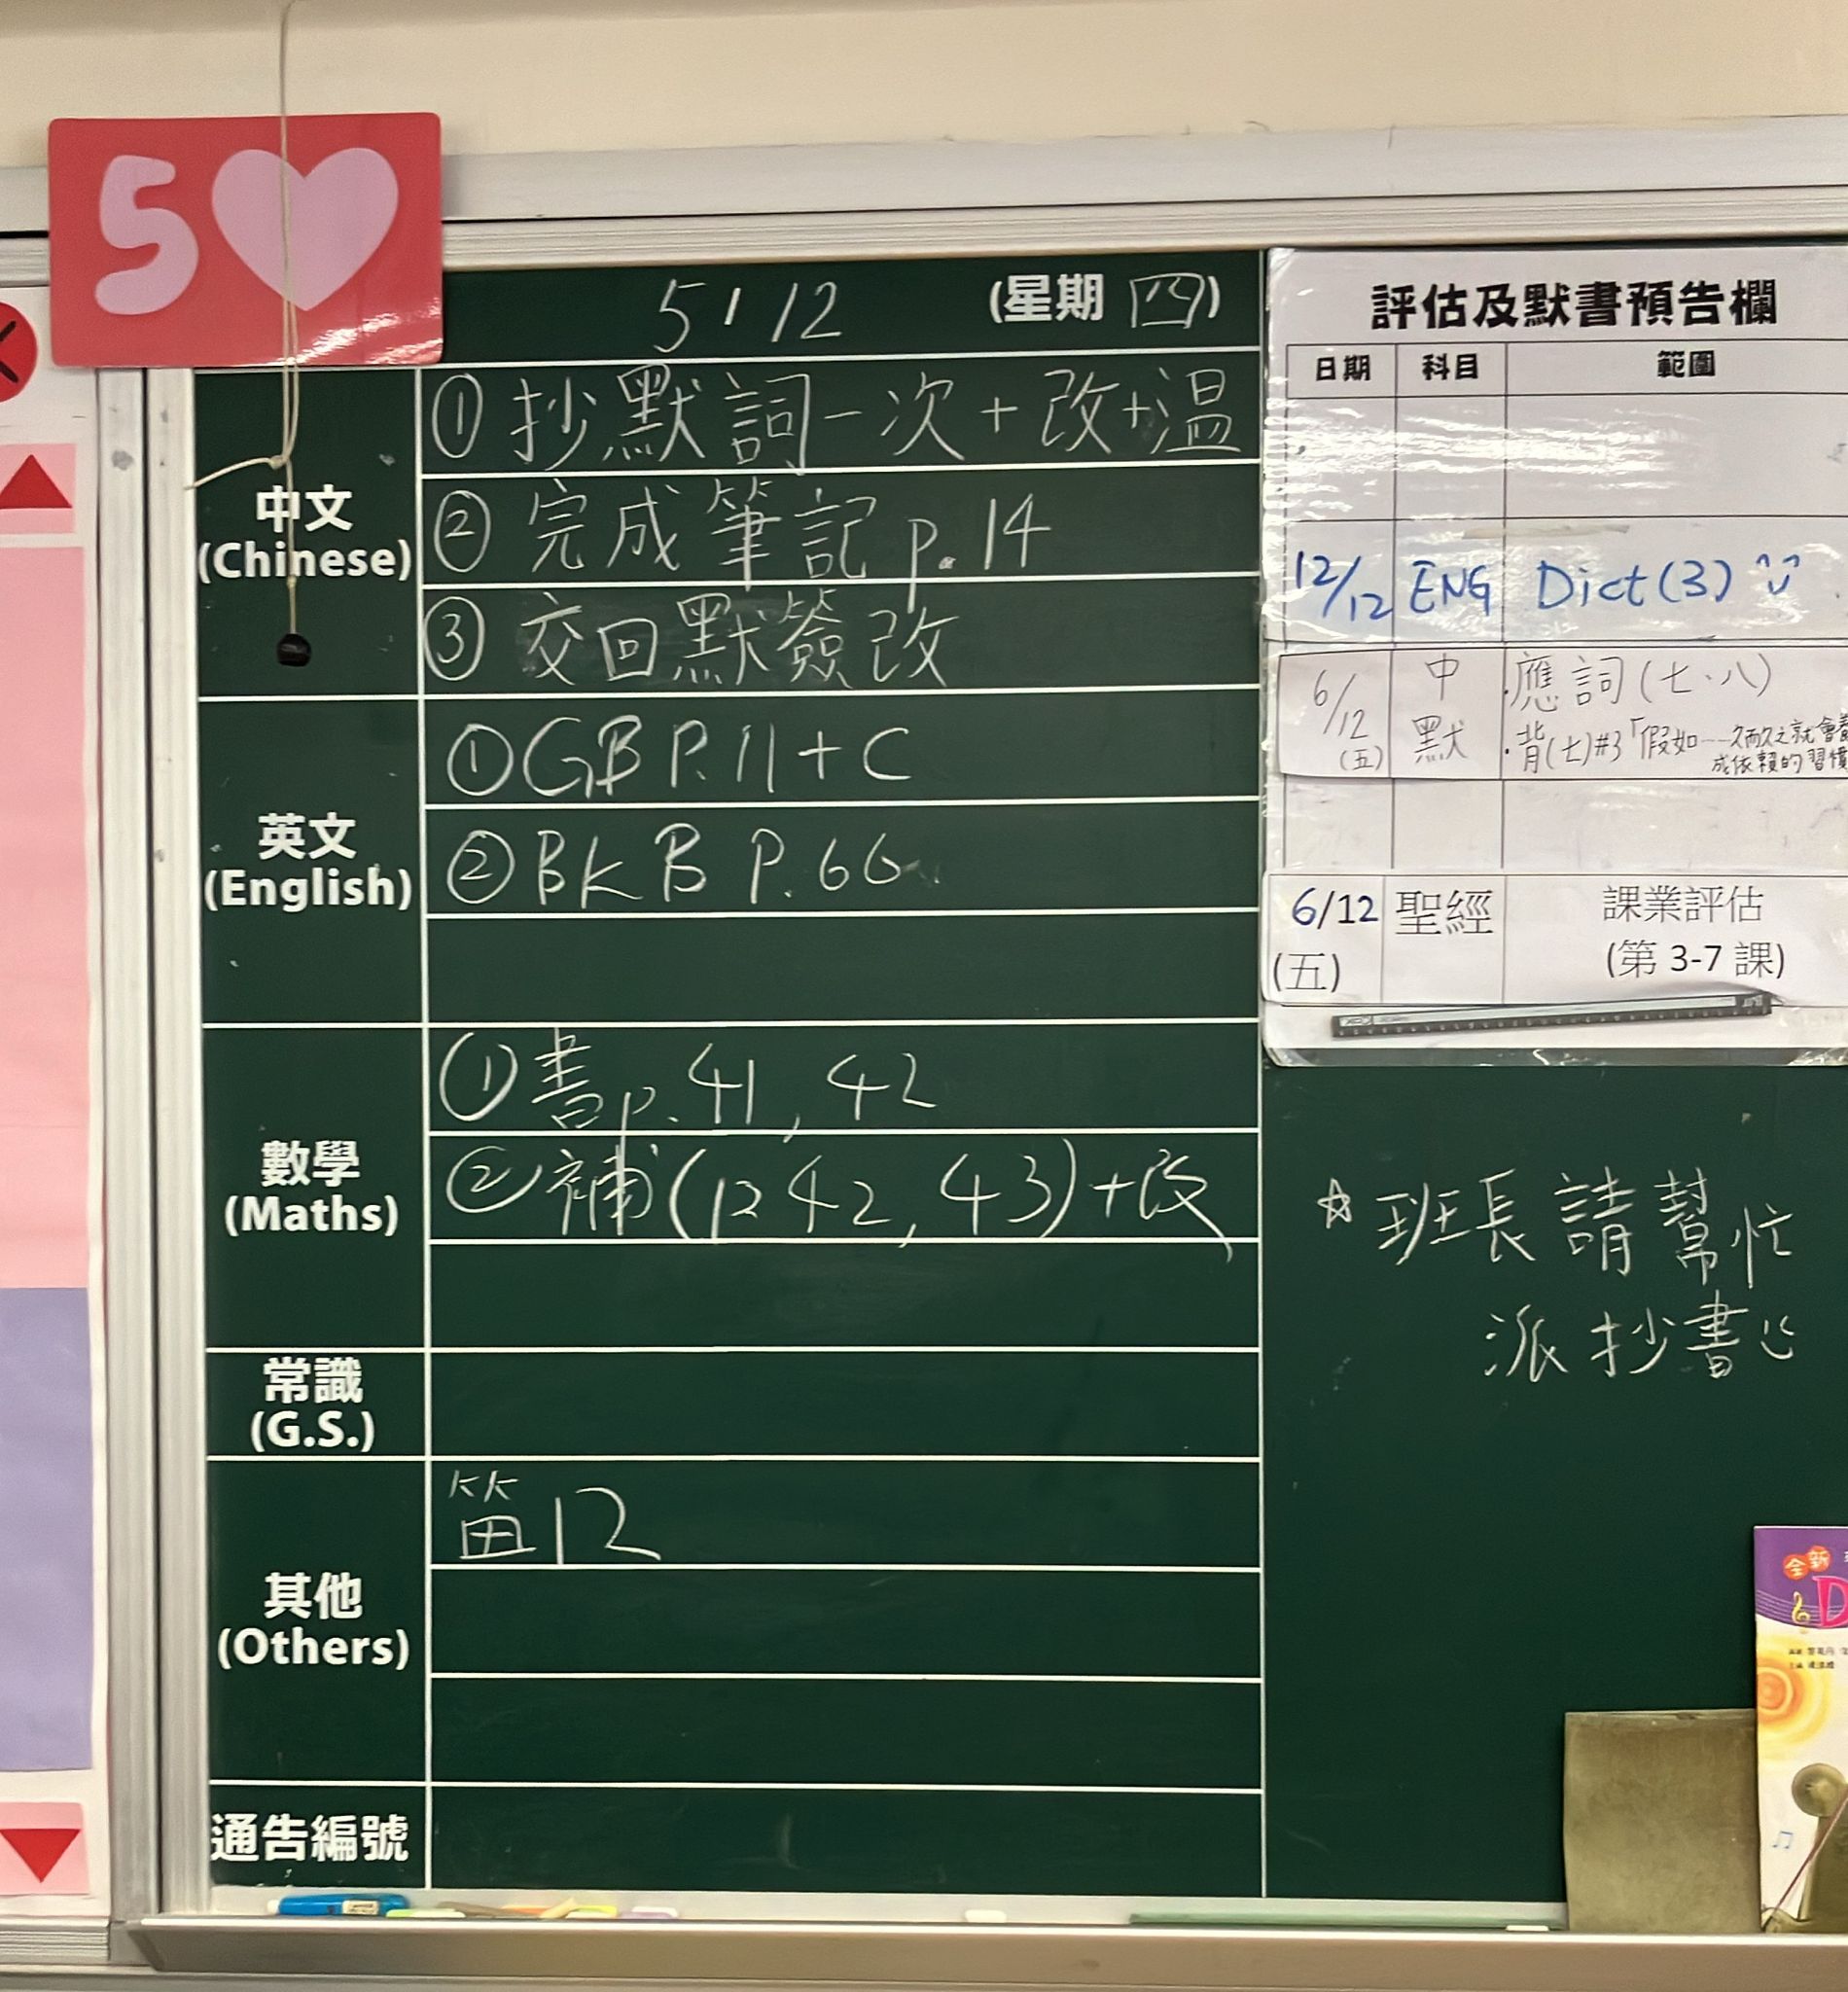 5
5/12 (星期四)
中文
(Chinese)
① 抄默詞一次+改+温
② 完成筆記 p.14
③ 交回默簽改
英文
(English)
① GB P.11 + C
② BK B P.66
數學
(Maths)
① 書p.41, 42
② 補(p.42, 43)+改
常識
(G.S.)
其他
(Others)
笛12
通告編號
評估及默書預告欄
日期 科目 範圍
12/12 ENG Dict(3)
6/12 (五) 中默 ·應詞(七、八)
·背(七)#3「假如……久而久之就會養
成依賴的習慣
6/12 聖經 課業評估
(五) (第 3-7 課)
☆班長請幫忙
派抄書
全新
D